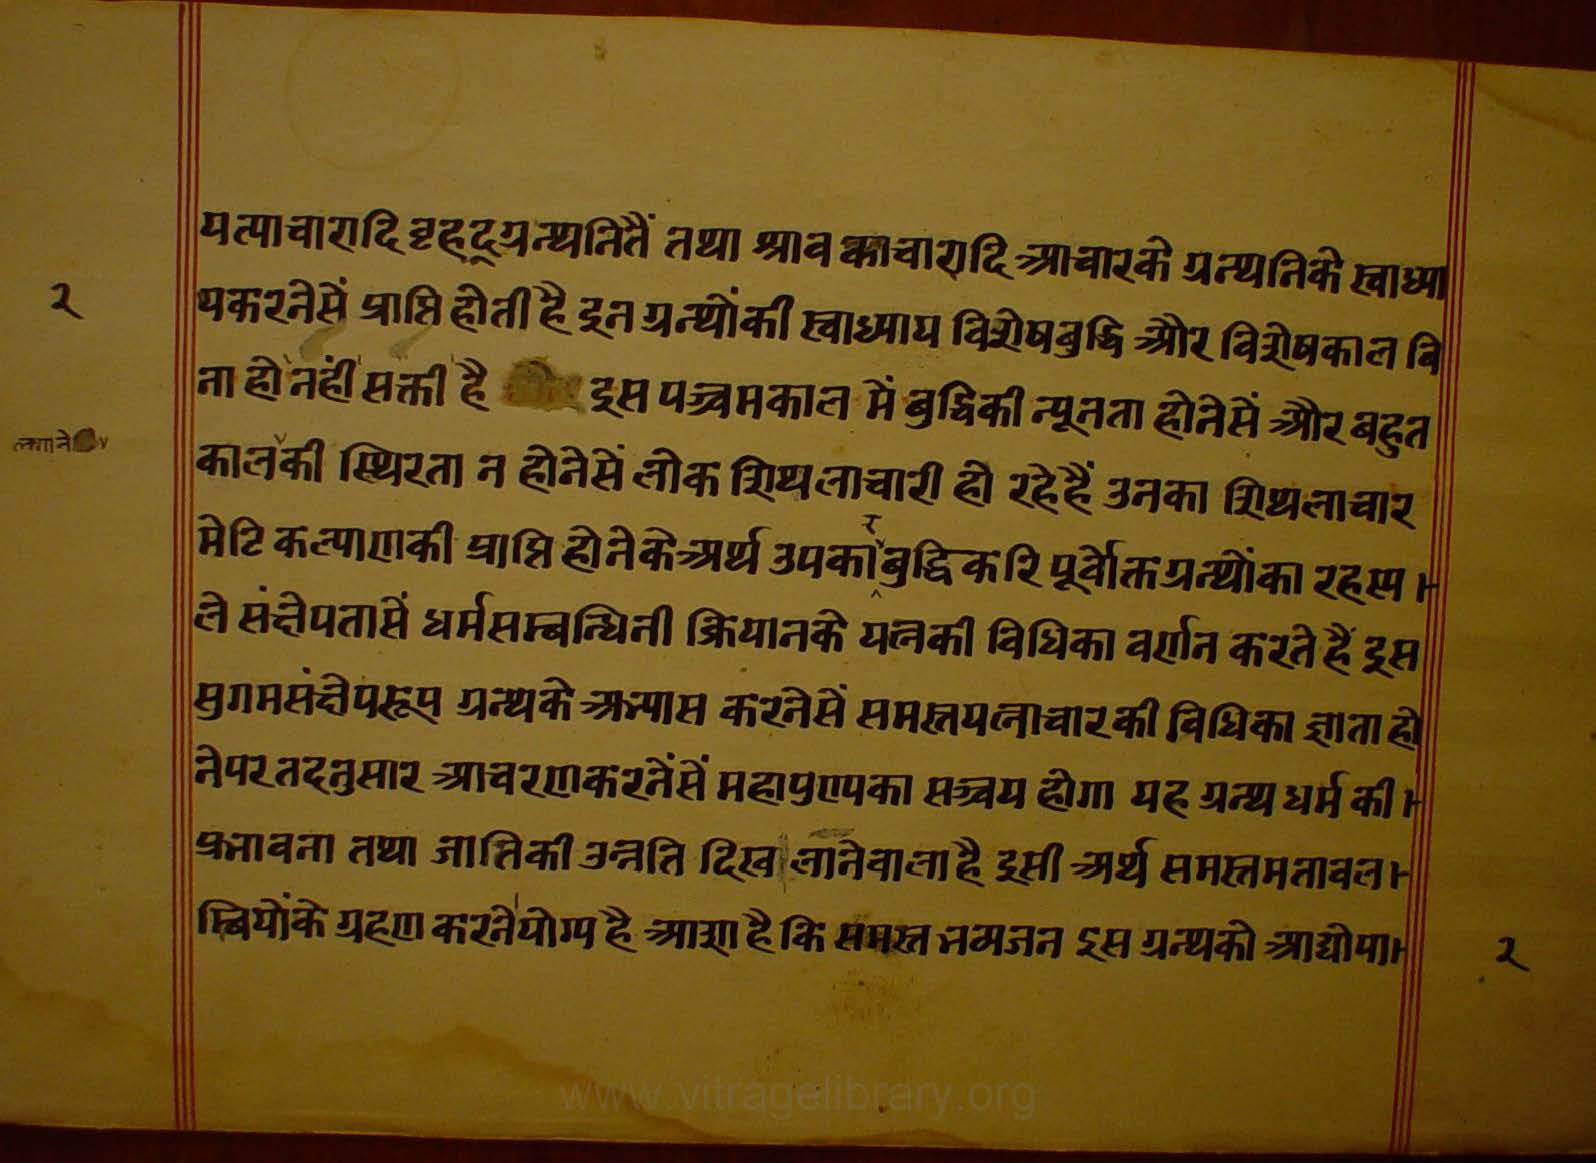 यत्याचारादि वृहद्ग्रन्थनितैं तथा श्रावकाचारादि आचारके ग्रन्थनिके स्वाध्या
२
यकरनेसें प्राप्ति होती है इन ग्रन्थोंकी स्वाध्याय विशेषबुद्धि और विशेषकाल वि
ना हो नहीं सक्ती है इस पञ्चमकाल में बुद्धिकी न्यूनता होनेसें और बहुत
लगाने
कालकी स्थिरता न होनेसें लोक शिथलाचारी हो रहे हैं उनका शिथलाचार
र
मेटि कल्याणकी प्राप्ति होनेके अर्थ उपका बुद्धिकरि पूर्वोक्त ग्रन्थोंका रहस्य
ले संक्षेपतासें धर्मसम्बन्धिनी क्रियानके यत्नकी विधिका वर्णन करते हैं इस
सुगमसंक्षेपरूप ग्रन्थके अभ्यास करनेसें समस्तयत्नाचारकी विधिका ज्ञाता हो
नेपर तदनुसार आचरणकरनेंसें महापुण्यका सञ्चय होगा यह ग्रन्थ धर्म की
प्रभावना तथा जातिकी उन्नति दिखलानेवाला है इसी अर्थ समस्तमतावल
म्बियोंके ग्रहण करनेयोग्य है आशा है कि समस्त भव्यजन इस ग्रन्थको आद्योपा
२
www.vitragelibrary.org